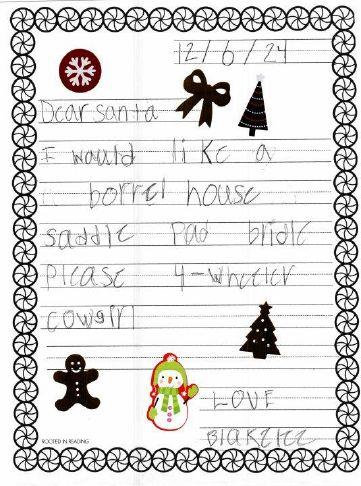 12/6/24
Dear santa
I would like a
borrel house
saddle Pad bridle
please 4-wheeler
cowgirl
LOVE
Blakelee
ROOTED IN READING